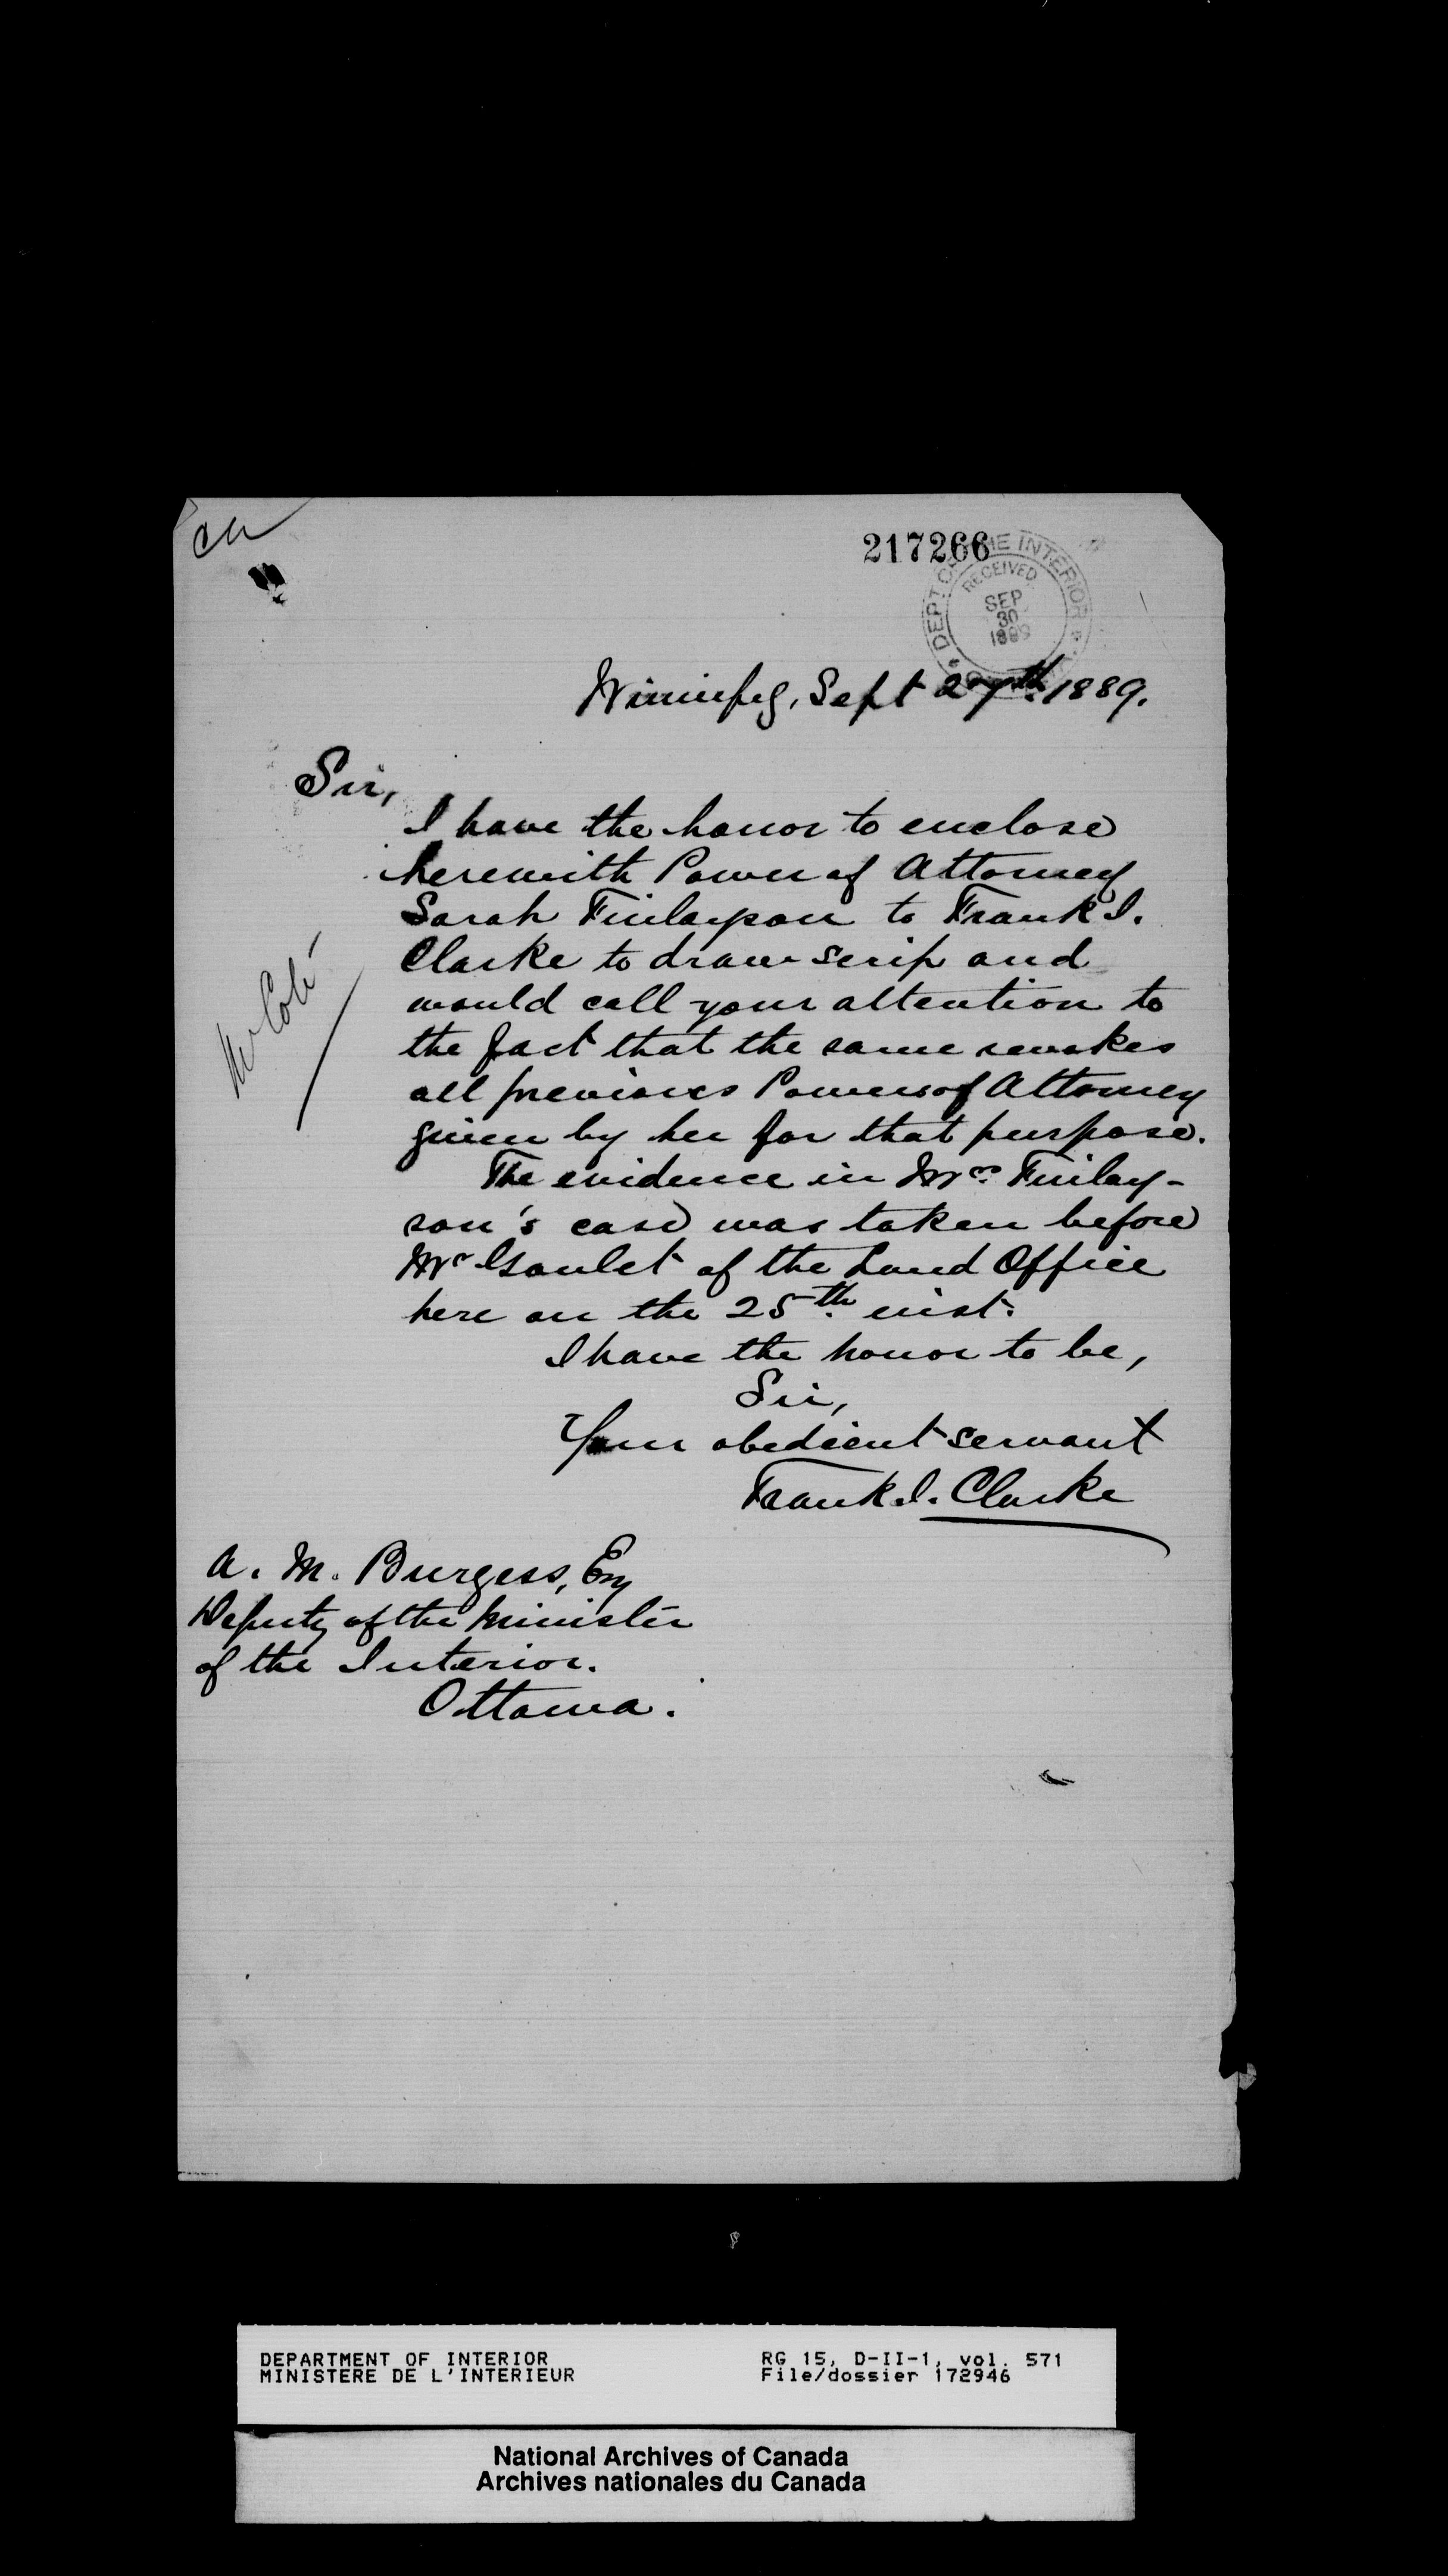 217266
DEPT. OF THE INTERIOR
RECEIVED
SEP
30
1889
Winnipeg, Sept 27th. 1889.
Sir,
I have the honor to enclose
herewith Power of Attorney
Sarah Finlayson to Frank I.
Clarke to draw scrip and
would call your attention to
the fact that the same revokes
all previous Powers of Attorney
given by her for that purpose.
The evidence in Mrs. Finlay-
son's case was taken before
Mr Goulet of the Land Office
here on the 25th. inst.
I have the honor to be,
Sir,
Your obedient servant
Frank I. Clarke
Mr Coté
A. M. Burgess, Esq
Deputy of the Minister
of the Interior.
Ottawa.
DEPARTMENT OF INTERIOR
MINISTERE DE L'INTERIEUR
RG 15, D-II-1, vol. 571
File/dossier 172946
National Archives of Canada
Archives nationales du Canada